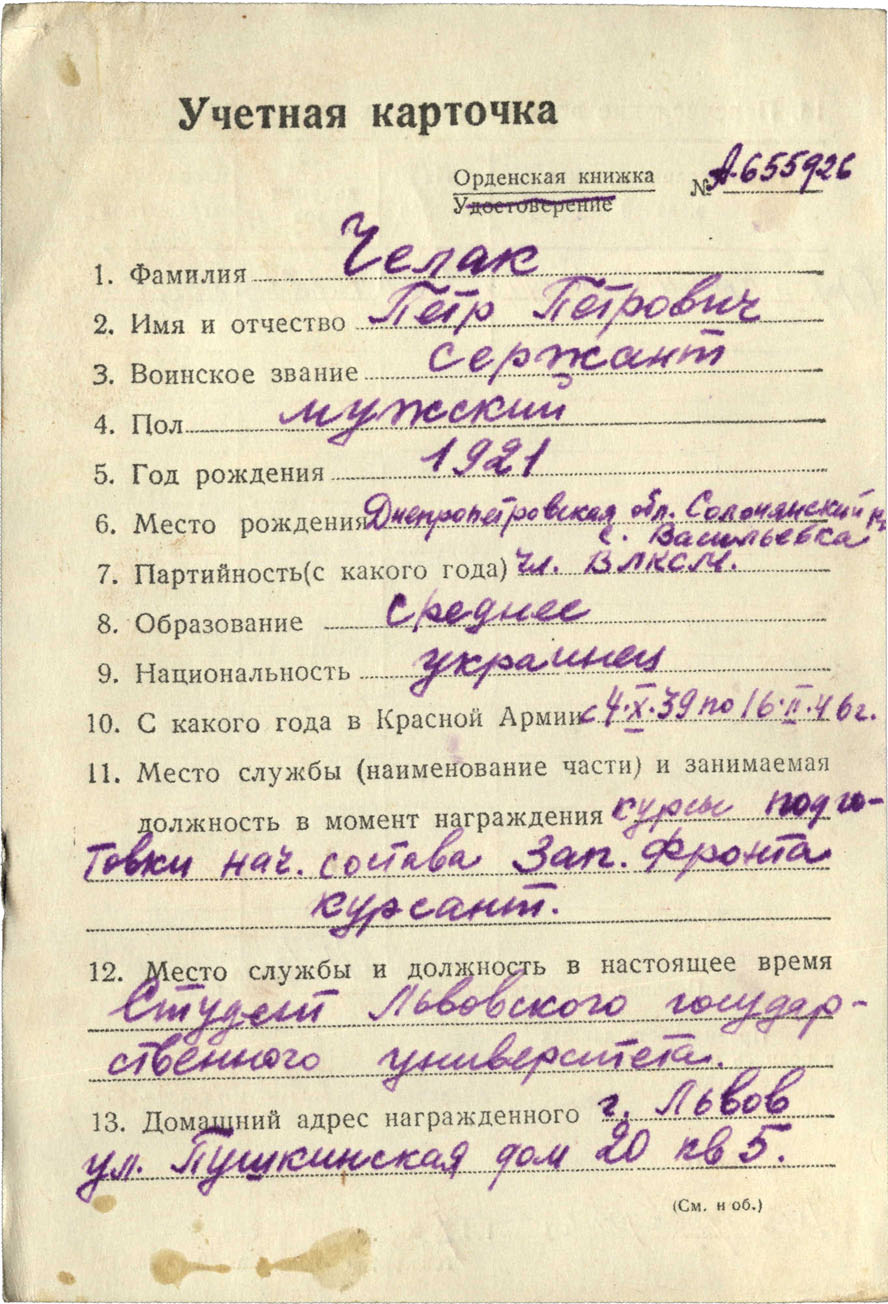 Учетная карточка
Орденская книжка № А-655926
Удостоверение
1. Фамилия Челак
2. Имя и отчество Пётр Петрович
3. Воинское звание сержант
4. Пол мужский
5. Год рождения 1921
6. Место рождения Днепропетровская обл. Солонянский р-н
с. Васильевка
7. Партийность (с какого года) чл. ВЛКСМ.
8. Образование среднее
9. Национальность украинец
10. С какого года в Красной Армии с 4.X.39 по 16.II.46г.
11. Место службы (наименование части) и занимаемая
должность в момент награждения курсы подго-
товки нач. состава Зап. Фронта
курсант.
12. Место службы и должность в настоящее время
Студент Львовского государ-
ственного университета.
13. Домашний адрес награжденного г. Львов
ул. Пушкинская дом 20 кв 5.
(См. н об.)